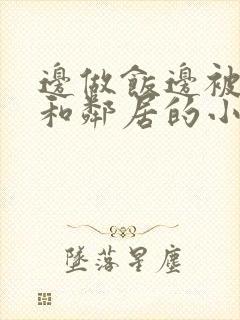 邊做飯邊被
和鄰居的小
墜落星塵